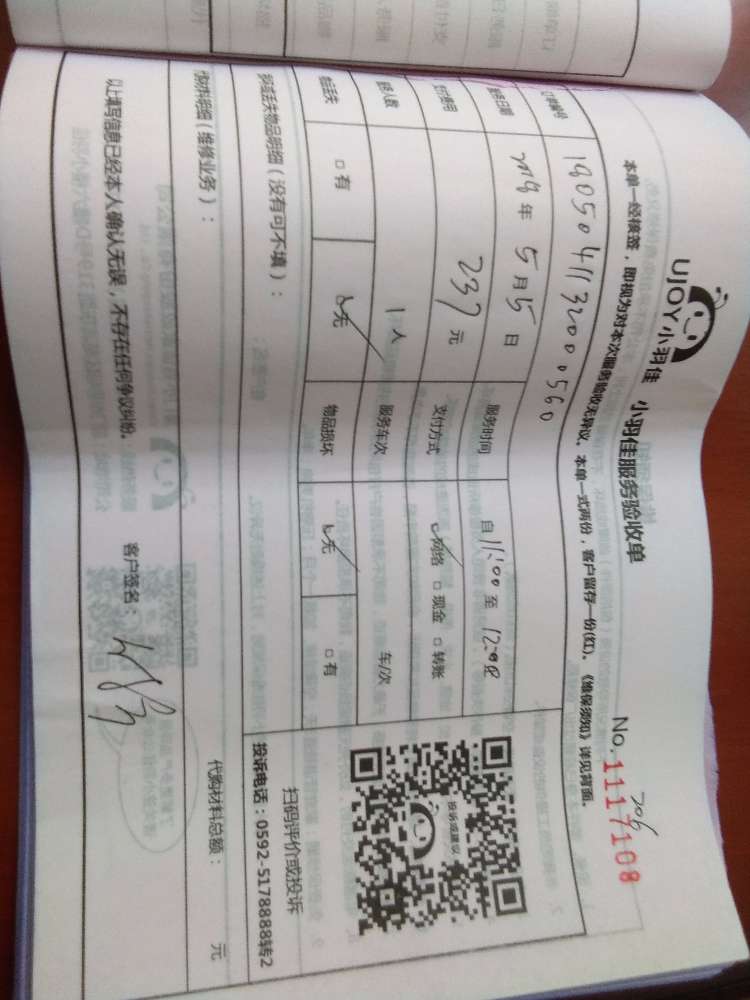 UJOY小羽佳
小羽佳服务验收单
No. 1117108
本单一经核签，即视为对本次服务验收无异议。本单一式两份，客户留存一份(红)。《维保须知》详见背面。
订单编号 1805041132000560
服务日期 2018年5月5日 服务时间 自11:00至12:00
支付费用 237元 支付方式 网络 □现金 □转账
服务人数 1人 服务车次 车/次
物品丢失 □有 无 物品损坏 无 □有
损坏或丢失物品明细（没有可不填）：
投诉或建议
扫码评价或投诉
投诉电话：0592-5178888转2
代购材料明细（维修业务）：
代购材料总额： 元
以上填写信息已经本人确认无误，不存在任何争议纠纷。 客户签名：